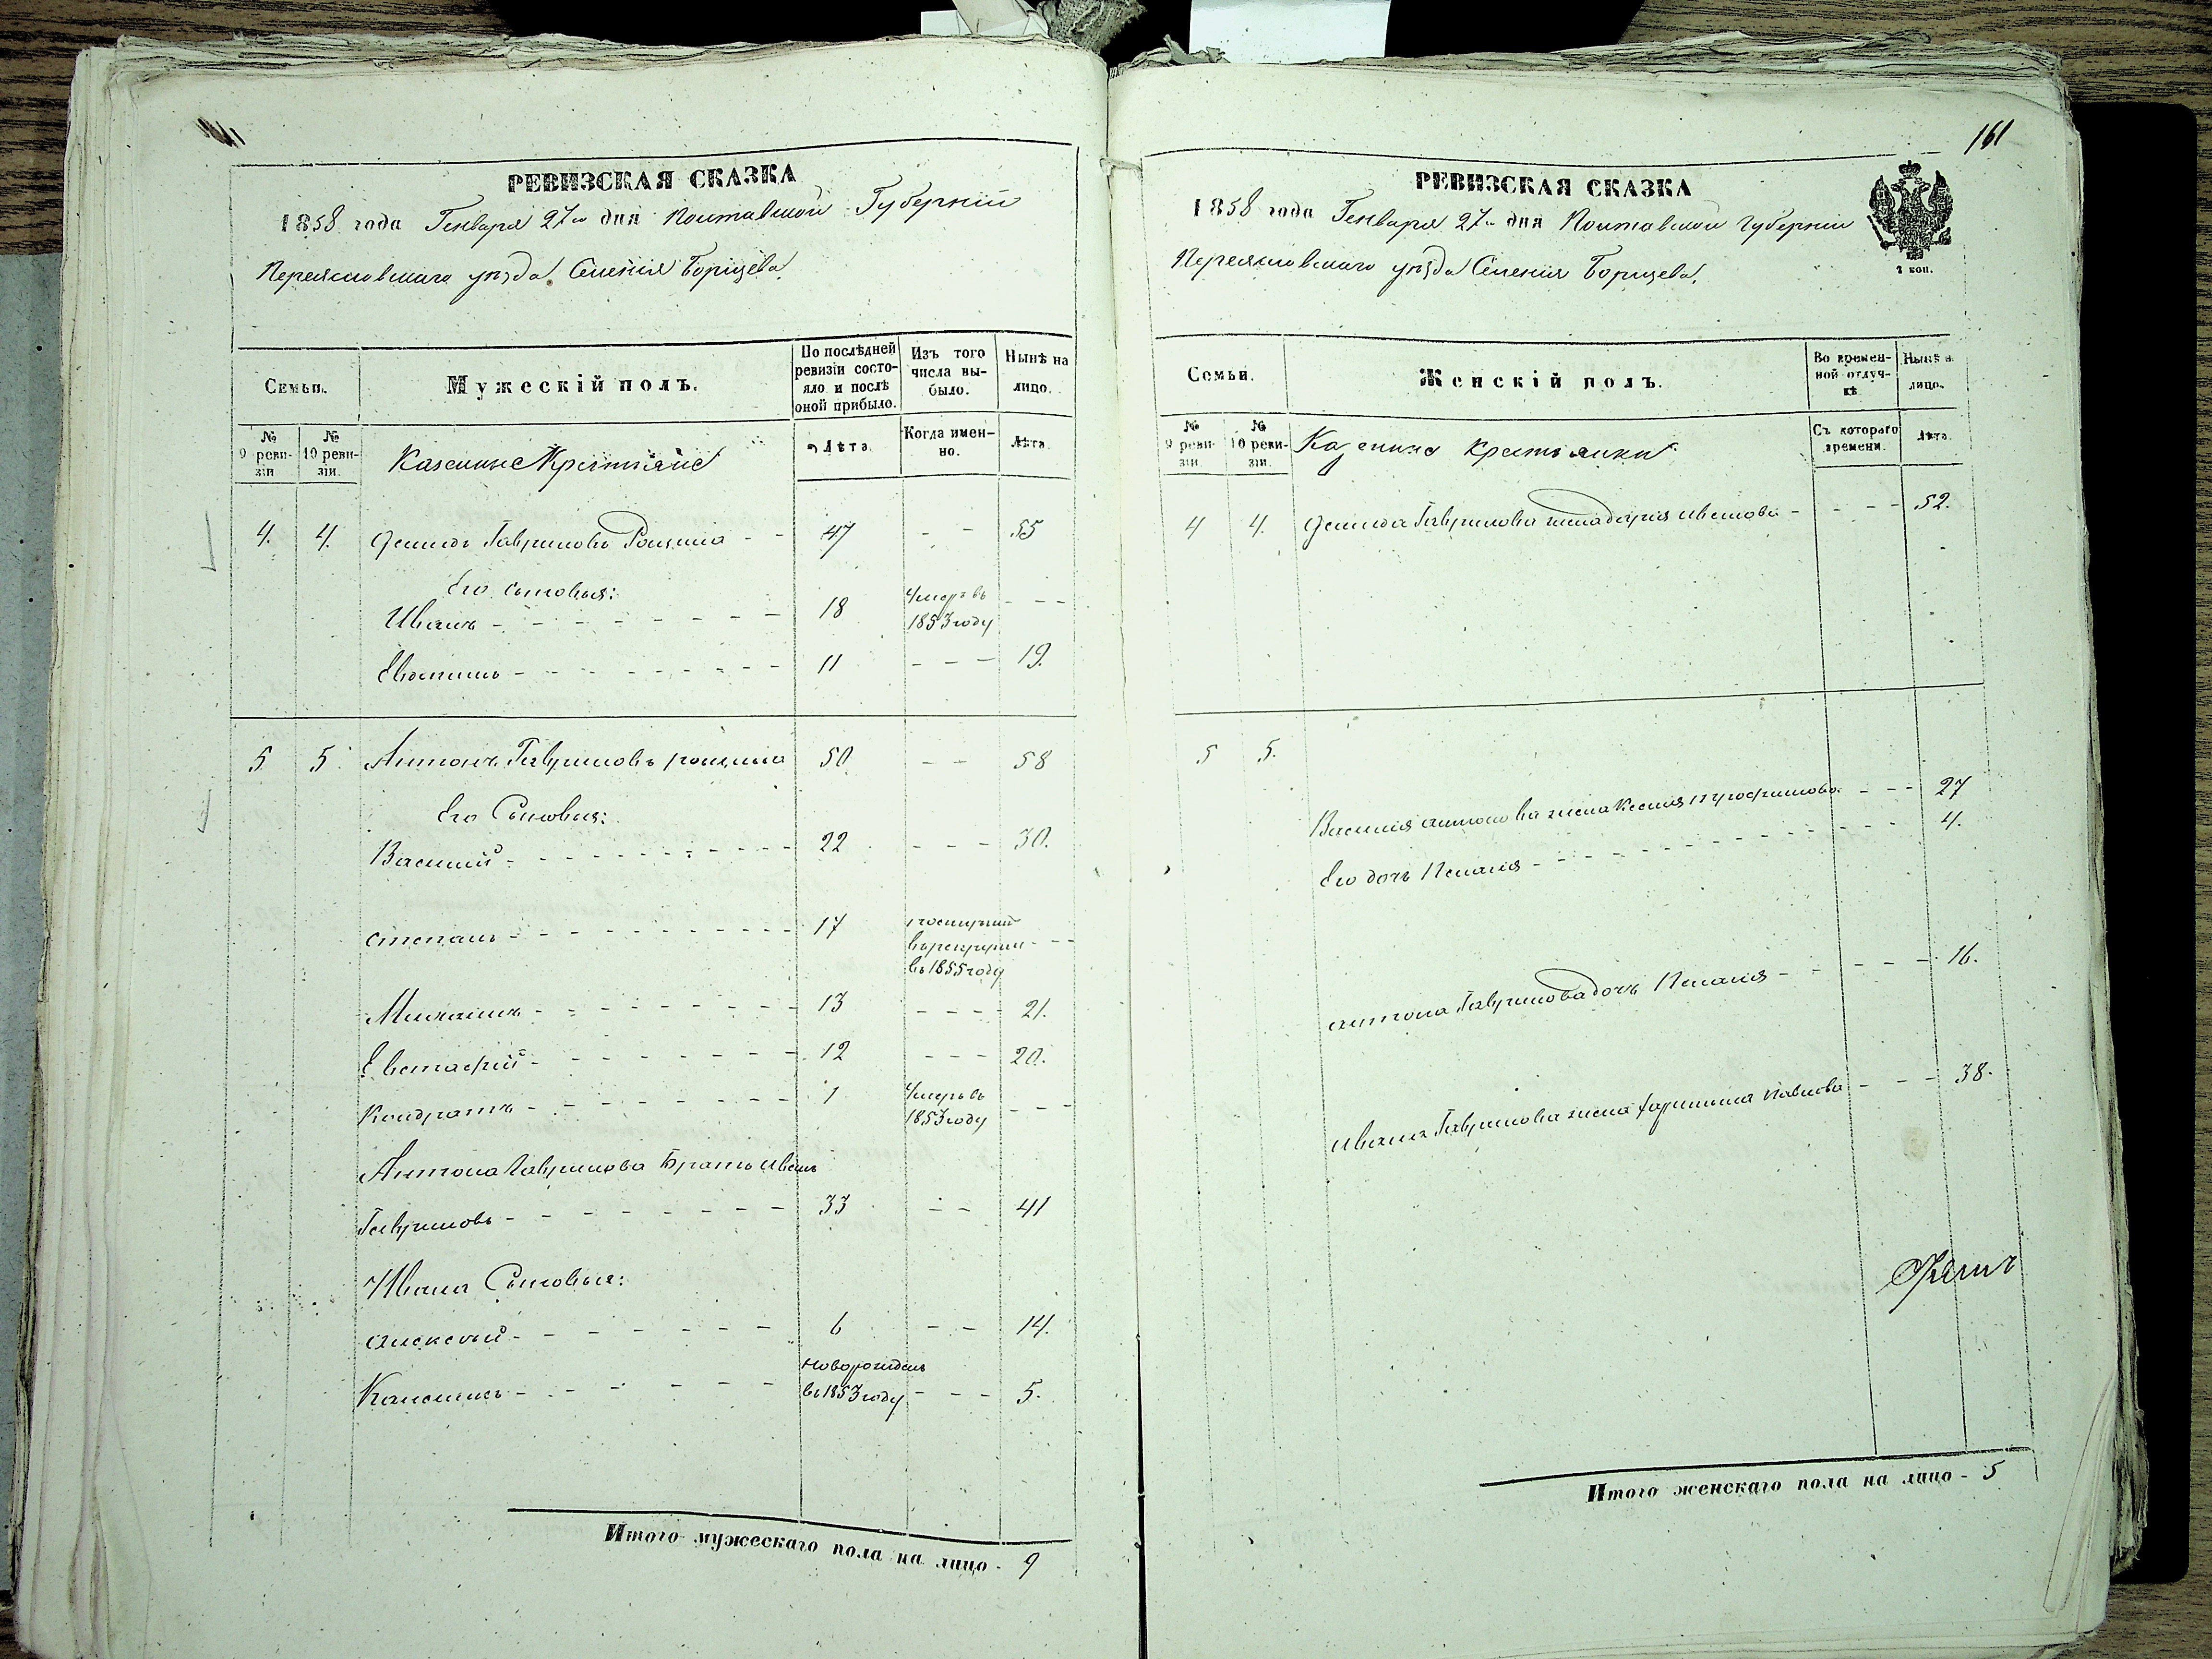 161
РЕВИЗСКАЯ СКАЗКА
1858 года Генваря 27го дня Полтавской Губерніи
Переяславскаго уѣзда Селенія Борщева
Семьи.
Мужескій полъ.
По послѣдней ревизіи состояло и послѣ оной прибыло.
Изъ того числа выбыло.
Нынѣ на лицо.
№ 9 ревизіи
№ 10 ревизіи.
Казенные Крестьяне
Лѣта.
Когда именно.
Лѣта.
4. 4. Демидъ Гавриловъ - - 47 - 55
Его сыновья:
Иванъ - - - 18 Умеръ въ 1853 году - - -
11 - - - 19.
5 5. Антонъ Гавриловъ 50 - - 58
Его Сыновья:
Василій - - - 22 - - - 30.
Степанъ - - - 17 въ рекруты въ 1855 году - - -
Михаилъ - - - 13 - - - 21.
Евстафій - - - 12 - - - 20.
Кондратъ - - - 1 Умеръ въ 1853 году - - -
Антона Гаврилова Братъ Иванъ
Гавриловъ - - - 33 - - 41
Ивана Сыновья:
Алексѣй - - - 6 - - 14.
новорожденъ
въ 1853 году - - - 5.
Итого мужескаго пола на лицо - 9
РЕВИЗСКАЯ СКАЗКА
1858 года Генваря 27го дня Полтавской Губерніи
Переяславскаго уѣзда Селенія Борщева.
2 коп.
Семьи.
Женскій полъ.
Во временной отлучкѣ
Нынѣ на лицо.
№ 9 ревизіи.
№ 10 ревизіи.
Казенные крестьянки
Съ котораго времени.
Лѣта.
4 4. Демида Гаврилова жена Дарія Иванова - - - - 52.
5 5.
Василія Антонова жена Ксенія Трофимова - - - 27
Его дочь - - - 4.
Антона Гаврилова дочь - - - 16.
Ивана Гаврилова жена Павлова - - - 38.
Итого женскаго пола на лицо - 5